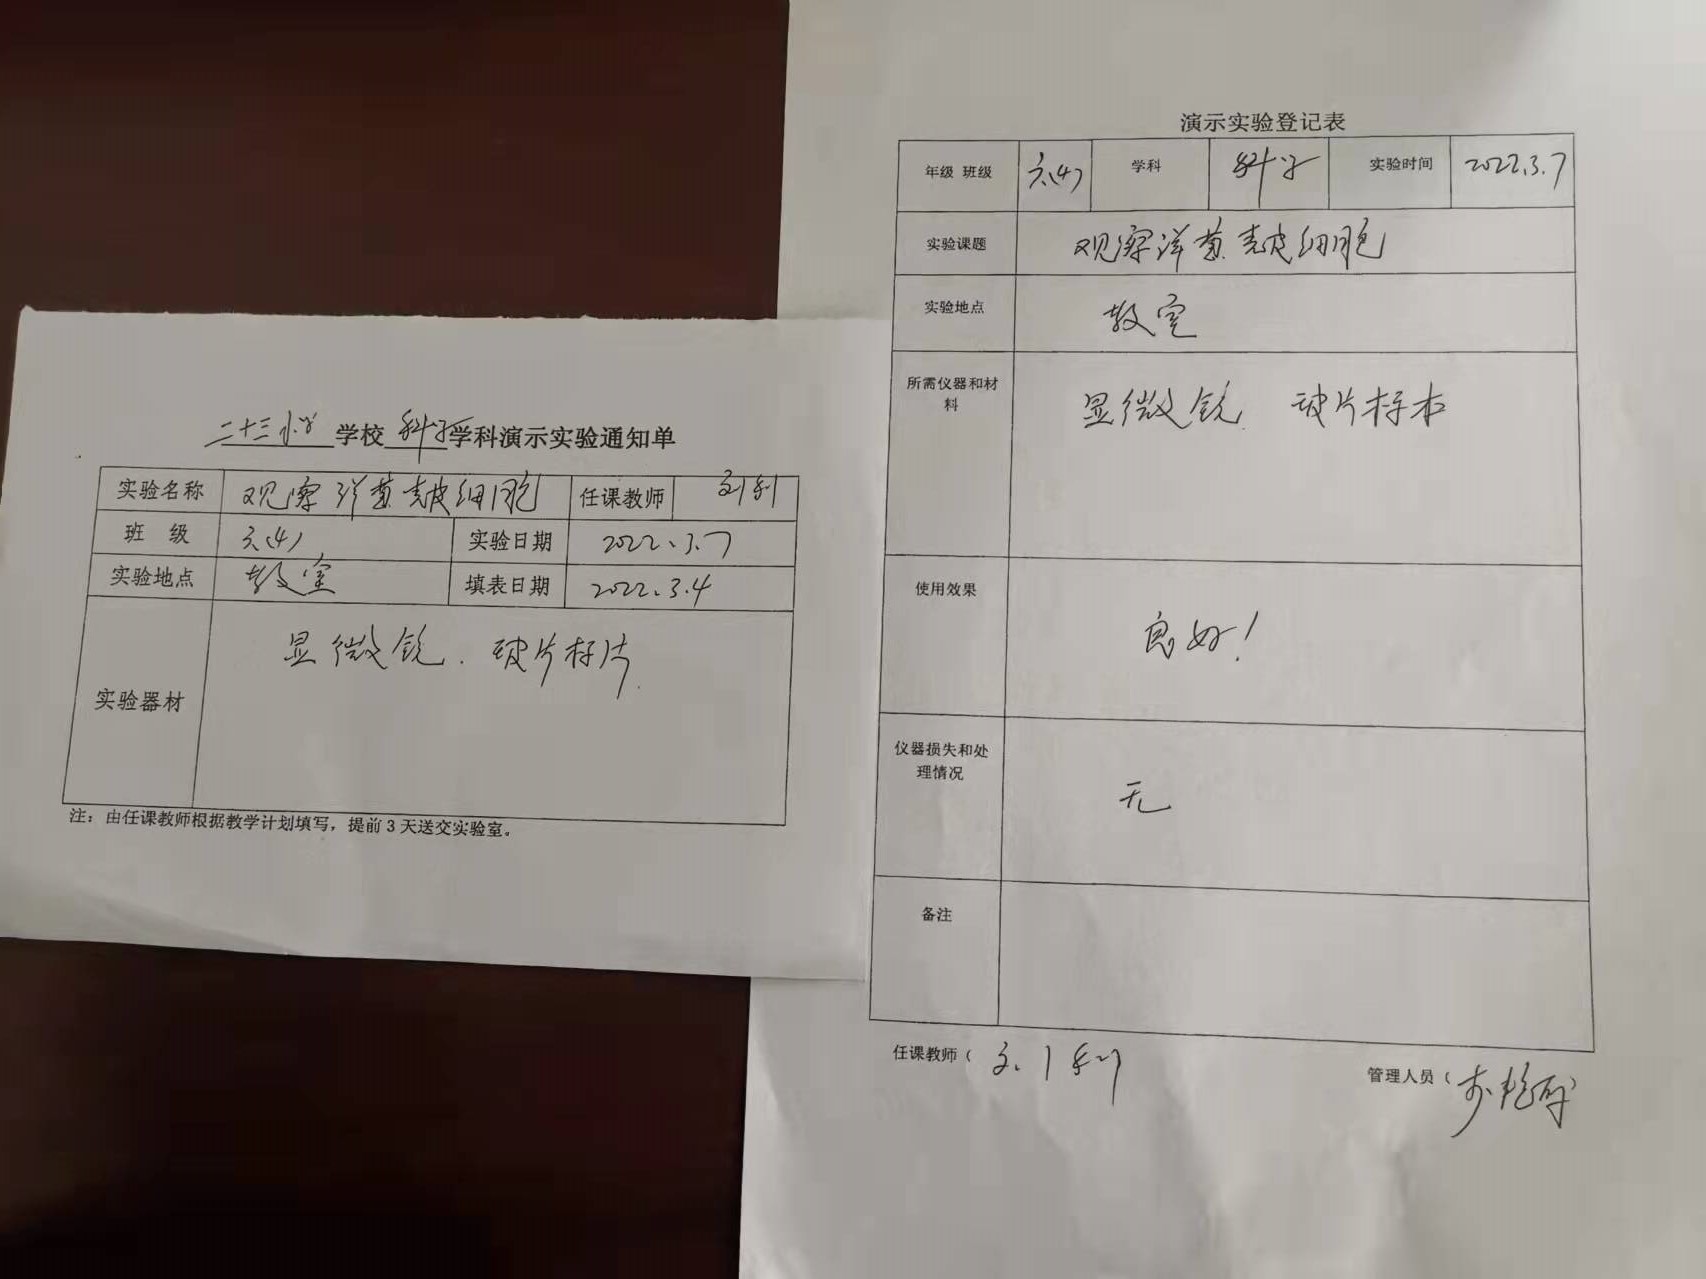 二十三小学 学校 科学 学科演示实验通知单
实验名称 观察洋葱表皮细胞 任课教师 刘利
班 级 六(4) 实验日期 2022.3.7
实验地点 教室 填表日期 2022.3.4
实验器材 显微镜. 玻片标片
注：由任课教师根据教学计划填写，提前3天送交实验室。
演示实验登记表
年级 班级 六(4) 学科 科学 实验时间 2022.3.7
实验课题 观察洋葱表皮细胞
实验地点 教室
所需仪器和材
料
显微镜. 玻片标本
使用效果 良好！
仪器损失和处
理情况
无
备注
任课教师（ 刘利
管理人员（